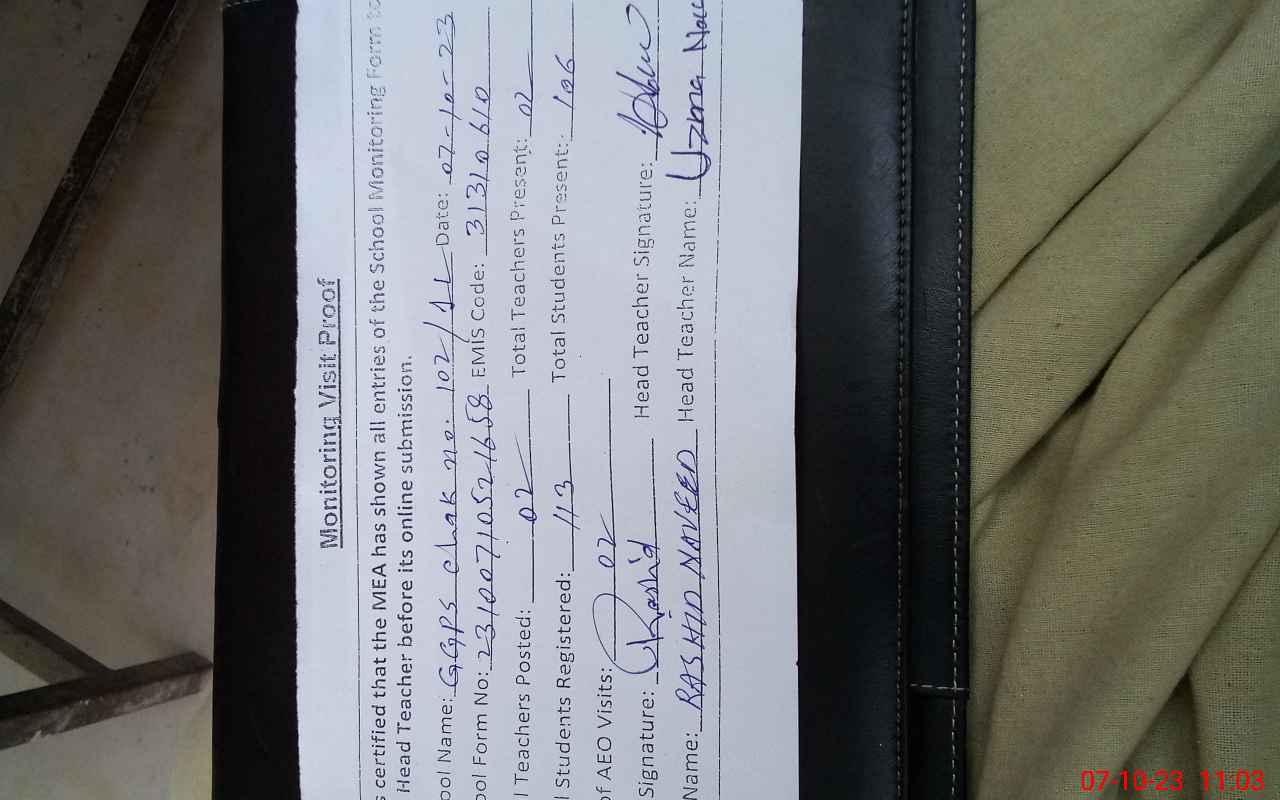 Monitoring Visit Proof
certified that the MEA has shown all entries of the School Monitoring Form to
Head Teacher before its online submission.
ool Name: GGPS Chak no. 102/1L Date: 07-10-23
ool Form No: 23100710521658 EMIS Code: 31310610
l Teachers Posted: 02 Total Teachers Present: 02
l Students Registered: 113 Total Students Present: 106
of AEO Visits: 02
Signature: Rashid Head Teacher Signature:
Name: RASHID NAVEED Head Teacher Name: Uzma
07-10-23 11:03